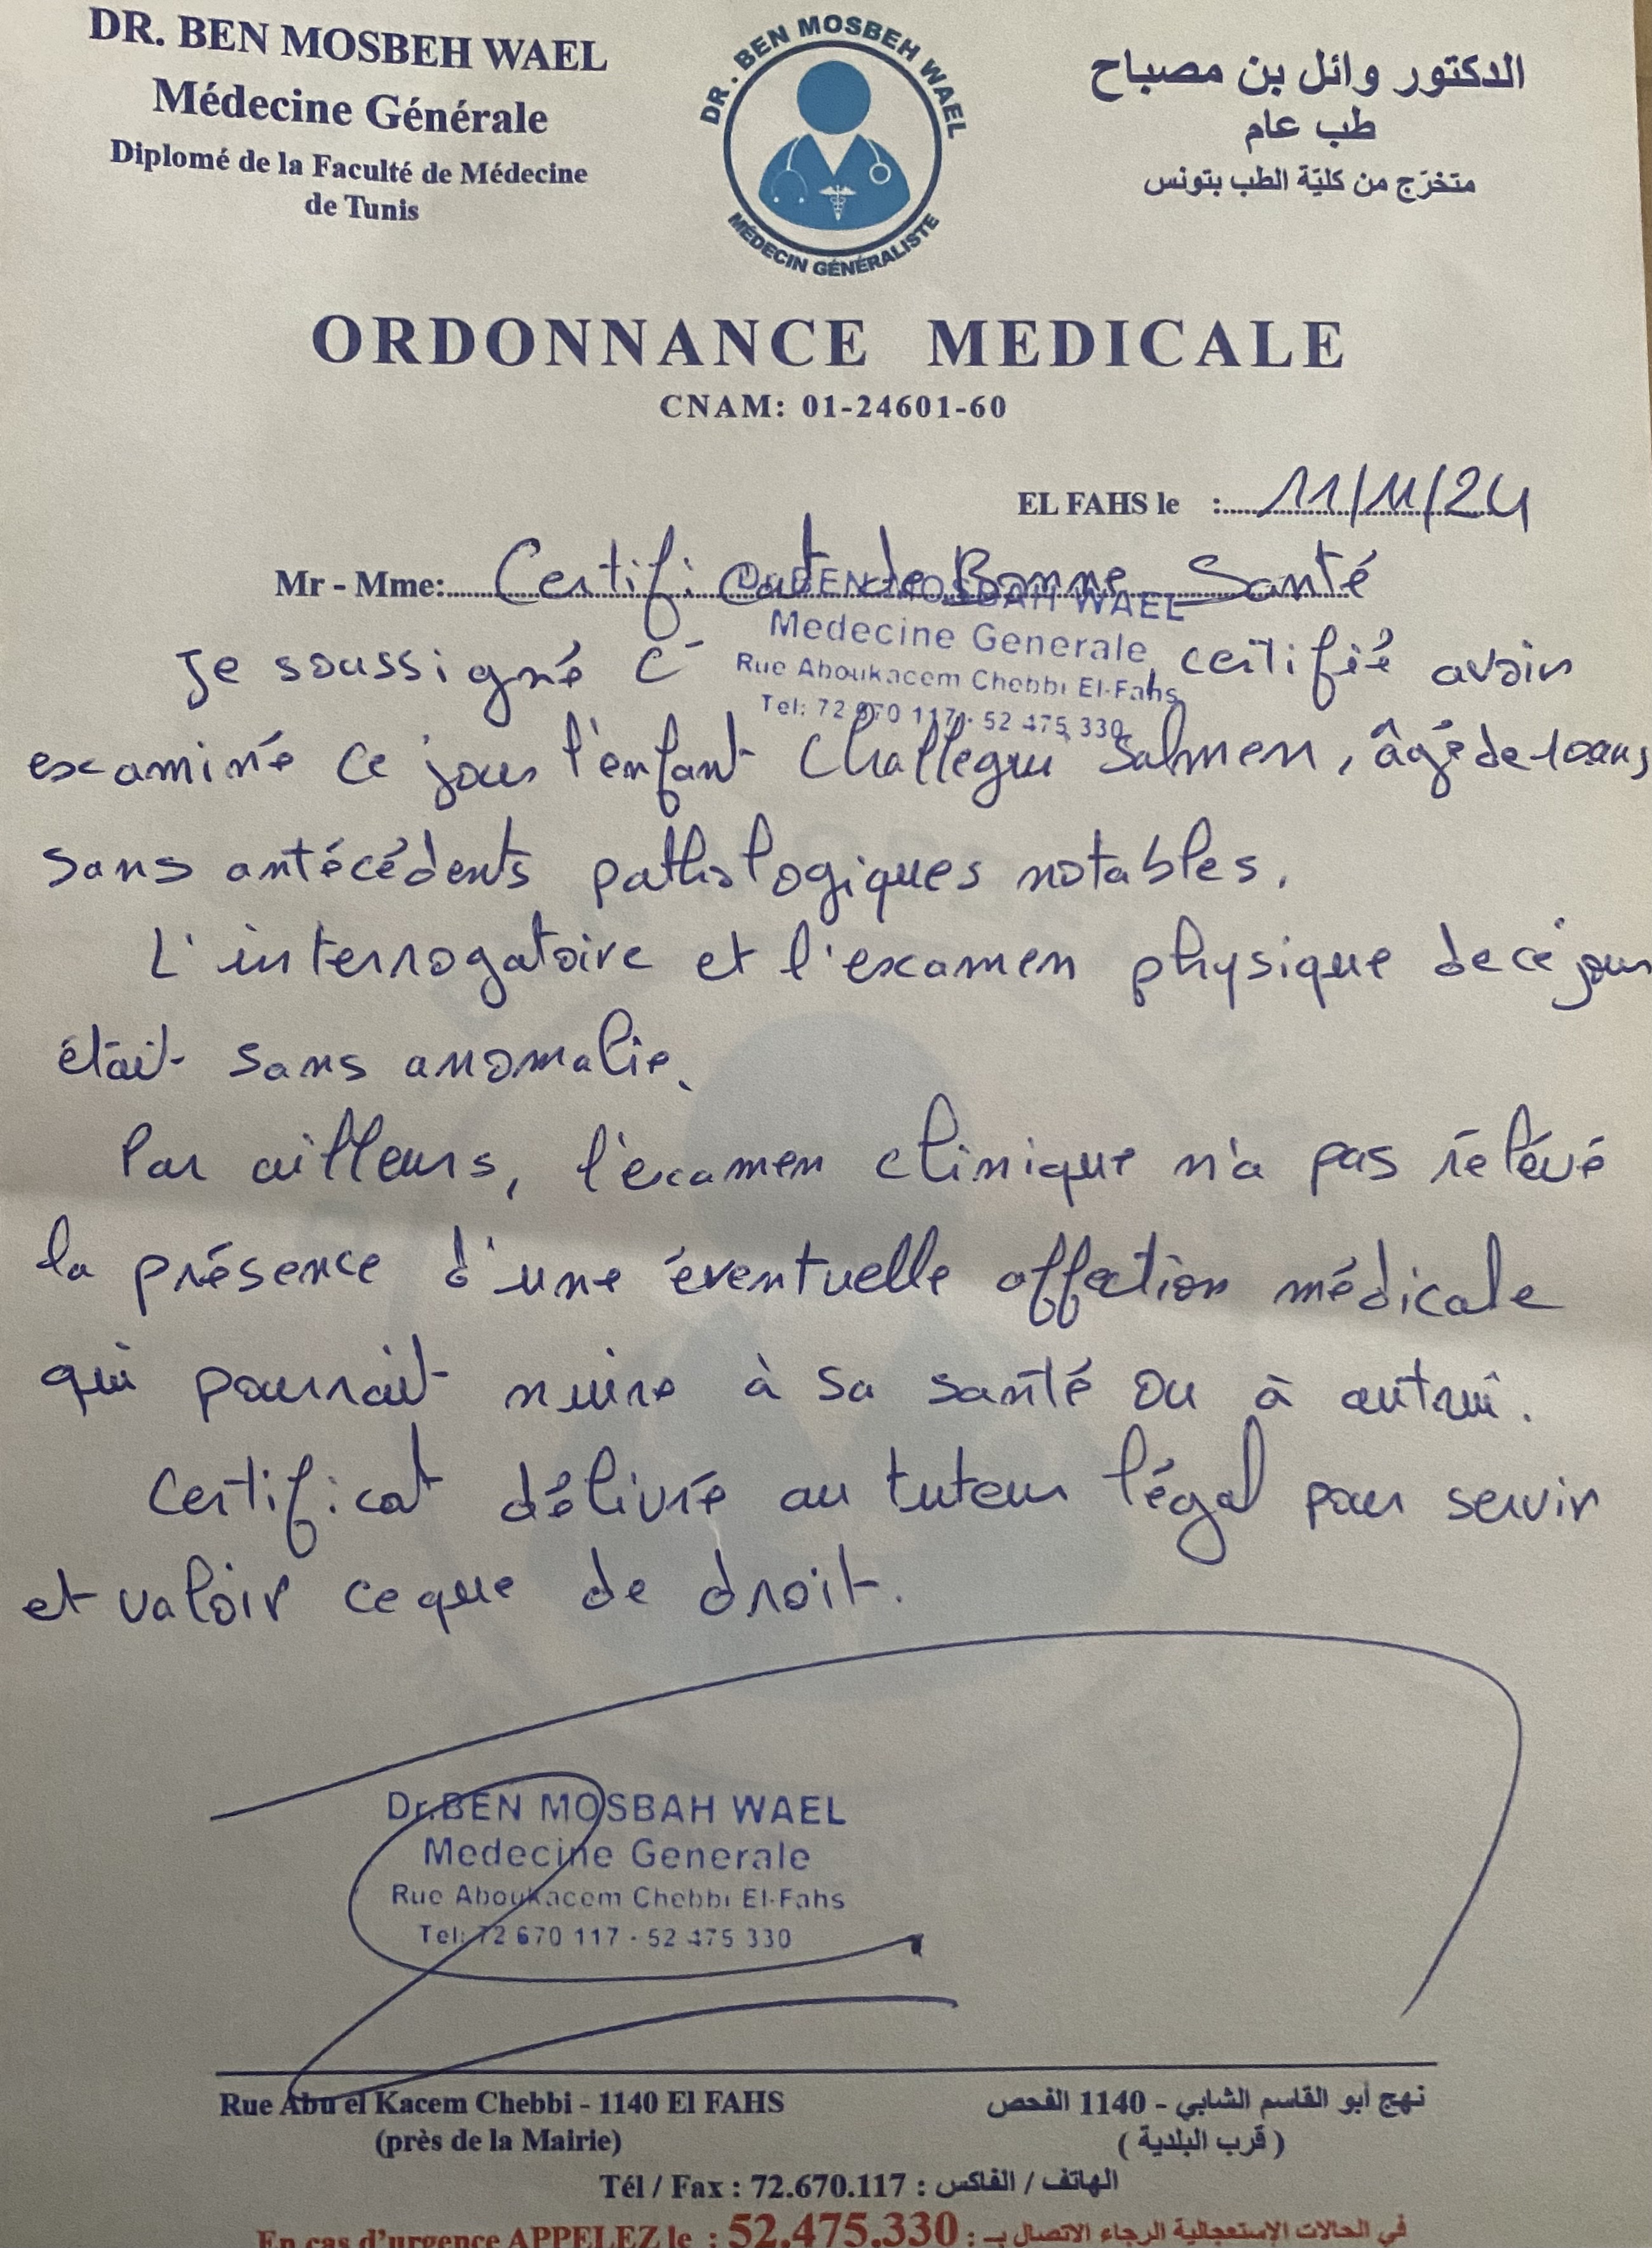 DR. BEN MOSBEH WAEL
Médecine Générale
Diplomé de la Faculté de Médecine
de Tunis
DR. BEN MOSBEH WAEL
MÉDECIN GÉNÉRALISTE
الدكتور وائل بن مصباح
طب عام
متخرّج من كليّة الطب بتونس
ORDONNANCE MEDICALE
CNAM: 01-24601-60
EL FAHS le : 11/11/24
Mr - Mme: Certificat de Bonne Santé
Dr.BEN MOSBAH WAEL
Medecine Generale
Rue Aboukacem Chebbi El-Fahs
Tel: 72 670 117 - 52 475 330
Je soussigné certifié avoir
examiné ce jour l'enfant Challegui Salmen, âgé de 10 ans,
sans antécédents pathologiques notables.
L'interrogatoire et l'examen physique de cé jour
était sans anomalie.
Par ailleurs, l'examen clinique n'a pas rélévé
la présence d'une éventuelle affection médicale
qui pourrait nuire à sa santé ou à autrui.
Certificat délivré au tuteur légal pour servir
et valoir ce que de droit.
Dr.BEN MOSBAH WAEL
Medecine Generale
Rue Aboukacem Chebbi El-Fahs
Tel: 72 670 117 - 52 475 330
Rue Abu el Kacem Chebbi - 1140 El FAHS
(près de la Mairie)
نهج أبو القاسم الشابي - 1140 الفحص
( قرب البلدية )
Tél / Fax : 72.670.117 : الهاتف / الفاكس
En cas d'urgence APPELEZ le : 52.475.330 : في الحالات الإستعجالية الرجاء الاتصال بـ